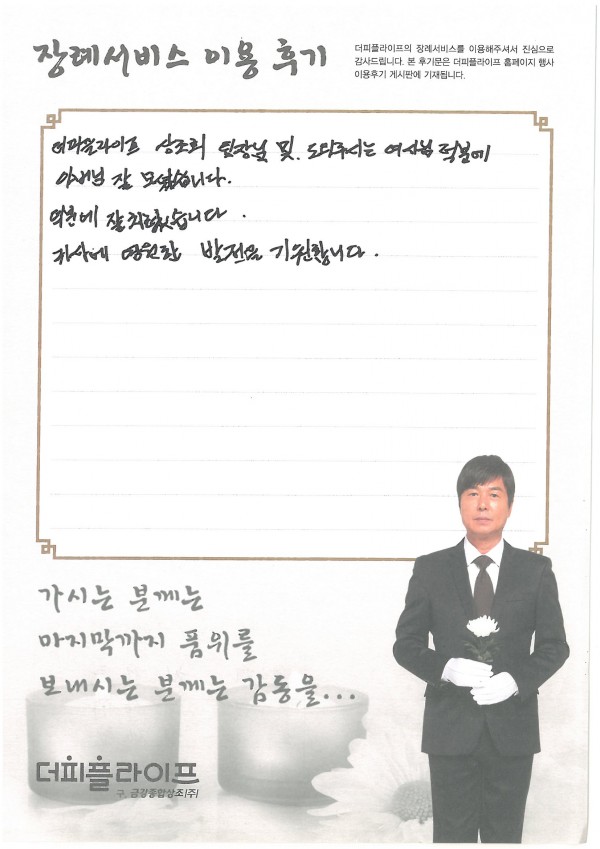 장례서비스 이용 후기
더피플라이프의 장례서비스를 이용해주셔서 진심으로
감사드립니다. 본 후기문은 더피플라이프 홈페이지 행사
이용후기 게시판에 기재됩니다.
더피플라이프 상조회 팀장님 및 도와주시는 여사님 덕분에
아버님 잘 모셨습니다.
덕분에 잘 치렀습니다.
귀사에 영원한 발전을 기원합니다.
가시는 분께는
마지막까지 품위를
보내시는 분께는 감동을...
더피플라이프
구. 금강종합상조(주)